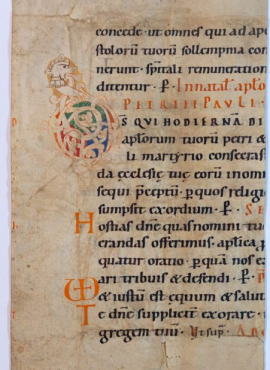 concede · ut omnes qui ad apo
stolorū tuorū sollempnia con
nerunt · spītali remuneration
ditentur · P · In natal aplōr
PETRI ET PAVLI ·
S QVI HODIERNA DI
aplorum tuorū petri &
li martyrio consecrast
da ęcclesię tuę eorū inomni
sequi pceptū · p quos religio
sumpsit exordium · P · SE
Hostias dne quas nomini tuo
crandas offerimus · aplica p
quatur oratio · p quā nos ex
ari tribuis & defendi · P · P
& iustū est equum & saluta
Te dne suppliciter exorare ·
gregem tuū · Yt sup ·